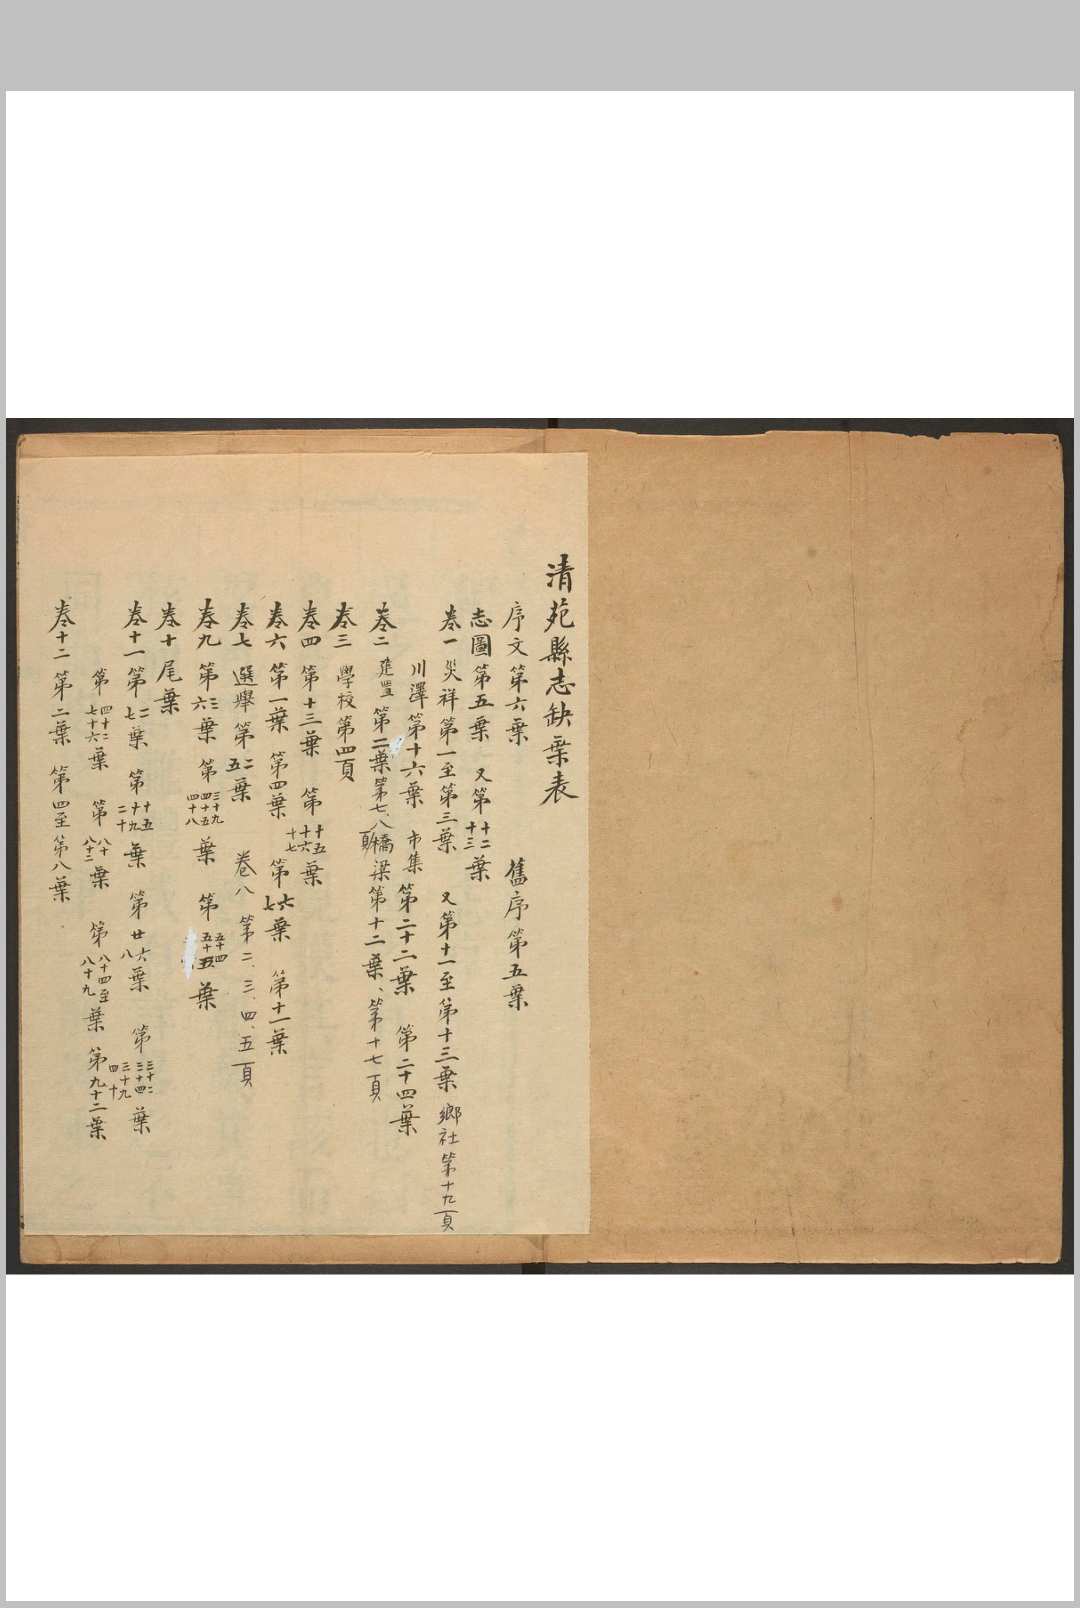 清苑縣志缺葉表
序文 第六葉 舊序 第五葉
志圖 第五葉 又第十二 十三葉
卷一 災祥 第一至第三葉 又第十一至第十三葉 鄉社 第十九頁
川澤 第十六葉 市集 第二十二葉 第二十四葉
卷二 建置 第二葉 第七、八頁 橋梁 第十二葉、第十七頁
卷三 學校 第四頁
卷四 第十三葉 第十五 十六 十七葉
卷六 第一葉 第四葉 第六 七葉 第十一葉
卷七 選舉 第二 五葉 卷八 第二、三、四、五頁
卷九 第三 六葉 第三十九 四十五 四十八葉 第五十四 五十五葉
卷十 尾葉
卷十一 第二 七葉 第十五 十九 二十葉 第廿六 八葉 第三十二 三十四 三十九 四十葉
第四十二 七十六葉 第八十 八十二葉 第八十四至八十九葉 第九十二葉
卷十二 第二葉 第四至第八葉